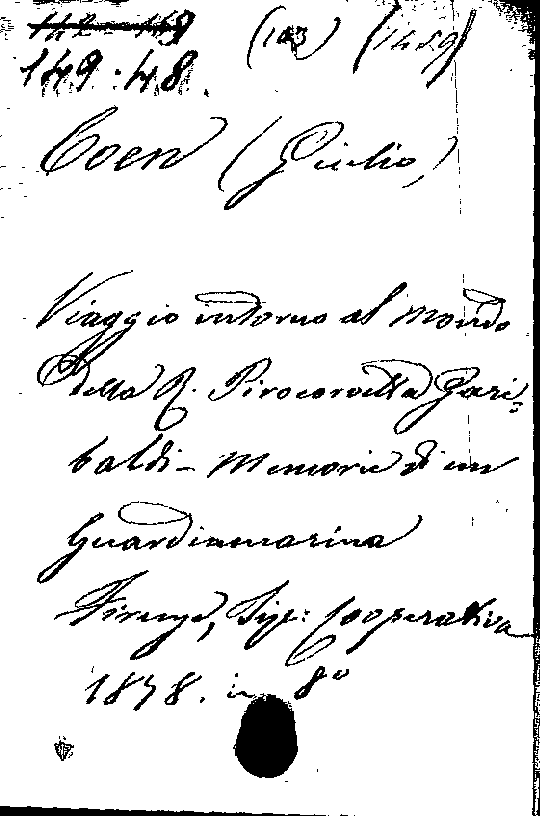 149.48. (103) (1459)
Coen (Giulio)
Viaggio intorno al Mondo
della R. Pirocorvetta Gari=
baldi - Memorie di un
Guardiamarina
Firenze, Tip: Cooperativa
1878. in 8º